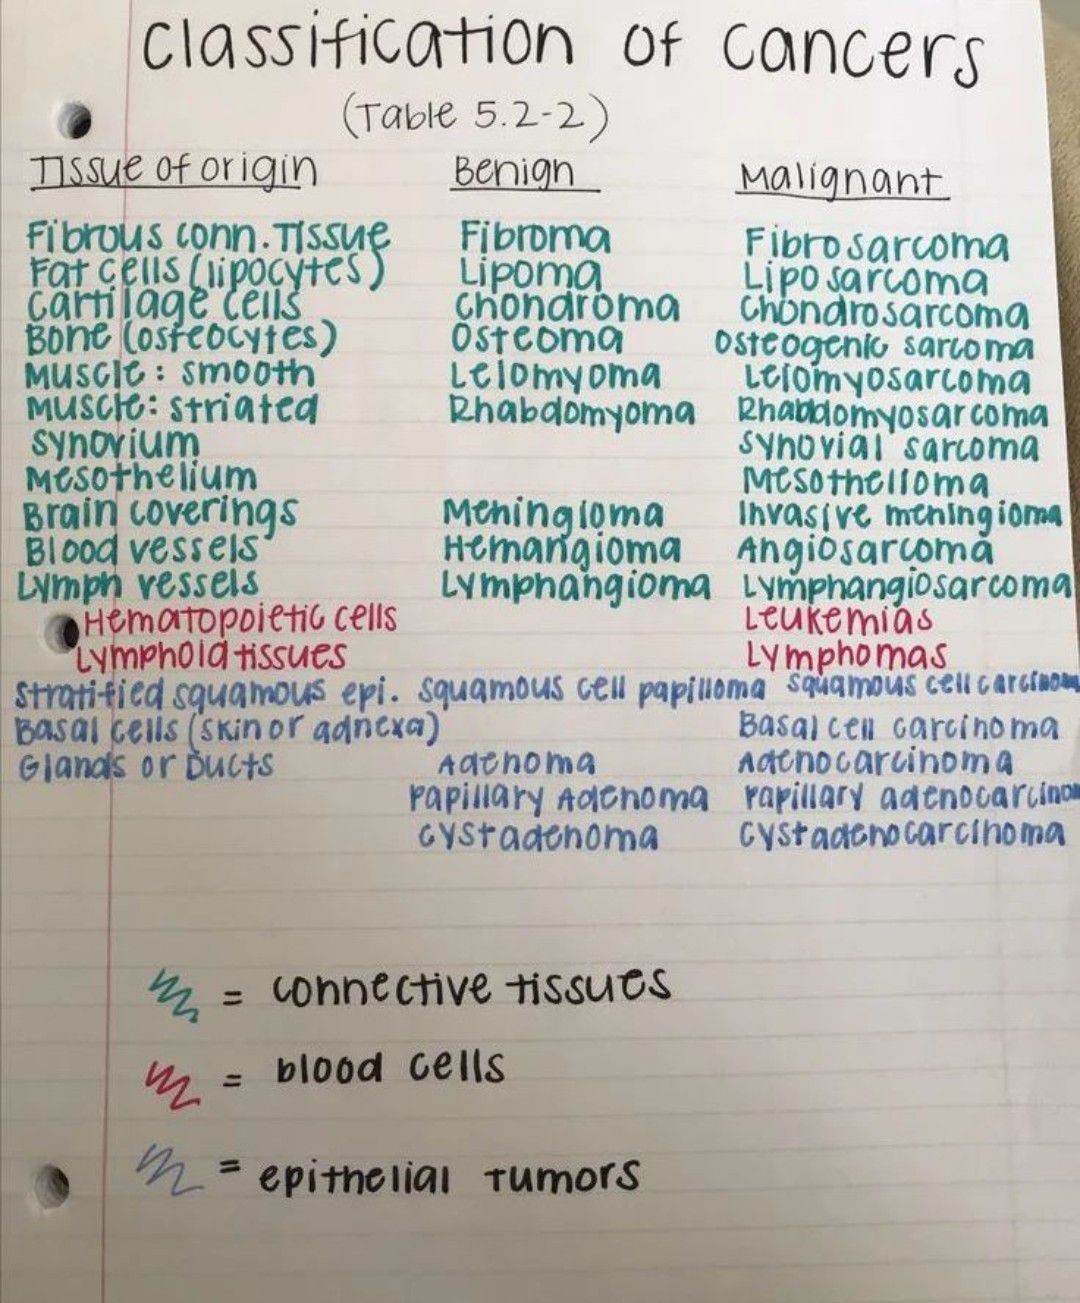 classification of cancers
(Table 5.2-2)
Tissue of origin Benign Malignant
Fibrous conn. Tissue Fibroma Fibrosarcoma
Fat cells (lipocytes) Lipoma Liposarcoma
Cartilage cells Chondroma Chondrosarcoma
Bone (osteocytes) Osteoma Osteogenic sarcoma
Muscle: smooth Leiomyoma Leiomyosarcoma
Muscle: striated Rhabdomyoma Rhabdomyosarcoma
Synovium Synovial sarcoma
Mesothelium Mesothelioma
Brain coverings Meningioma Invasive meningioma
Blood vessels Hemangioma Angiosarcoma
Lymph vessels Lymphangioma Lymphangiosarcoma
Hematopoietic cells Leukemias
Lymphoid tissues Lymphomas
Stratified squamous epi. squamous cell papilloma squamous cell carcinom
Basal cells (skin or adnexa) Basal cell carcinoma
Glands or Ducts Adenoma Adenocarcinoma
Papillary Adenoma Papillary adenocarcinom
Cystadenoma Cystadenocarcinoma
= connective tissues
= blood cells
= epithelial tumors